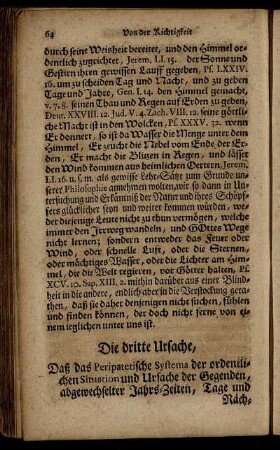 64 Von der Richtigkeit
durch seine Weisheit bereitet, und den Himmel or-
dentlich zugerichtet, Jerem. LI. 15. der Sonne und
Gestirn ihren gewissen Lauff gegeben, Ps. LXXIV.
16. um zu scheiden Tag und Nacht, und zu geben
Tage und Jahre, Gen. I. 14. den Himmel gemacht,
v. 7. 8. seinen Thau und Regen auf Erden zu geben,
Deut. XXVIII. 12. Jud. V. 4. Zach. VIII. 12. seine göttli-
che Macht ist in den Wolcken, Ps. XXXV. 32. wenn
Er donnert, so ist da Wasser die Menge unter dem
Himmel, Er zeucht die Nebel vom Ende der Er-
den, Er macht die Blitzen in Regen, und lässet
den Wind kommen aus heimlichen Oertern, Jerem.
LI. 16. u. s. m. als gewisse Lehr-Sätze zum Grunde un-
serer Philosophie annehmen wolten, wir so dann in Un-
tersuchung und Erkänntniß der Natur und ihres Schöpf-
fers glücklicher seyn und weiter kommen würden, we-
der diejenige Leute nicht zu thun vermögen, welche
immer den Irrweg wandeln, und GOttes Wege
nicht lernen; sondern entweder das Feuer oder
Wind, oder schnelle Luft, oder die Sternen,
oder mächtiges Wasser, oder die Lichter am Him-
mel, die die Welt regieren, vor Götter halten, Ps.
XCV. 10. Sap. XIII. 2. mithin darüber aus einer Blind-
heit in die andere, endlich aber in die Verstockung gera-
then, daß sie daher denjenigen nicht suchen, fühlen
und finden können, der doch nicht ferne von ei-
nem ieglichen unter uns ist.
Die dritte Ursache,
Daß das Peripatetische Systema der ordentli-
chen Situation und Ursache der Gegenden,
abgewechselter Jahrs-Zeiten, Tage und
Näch-